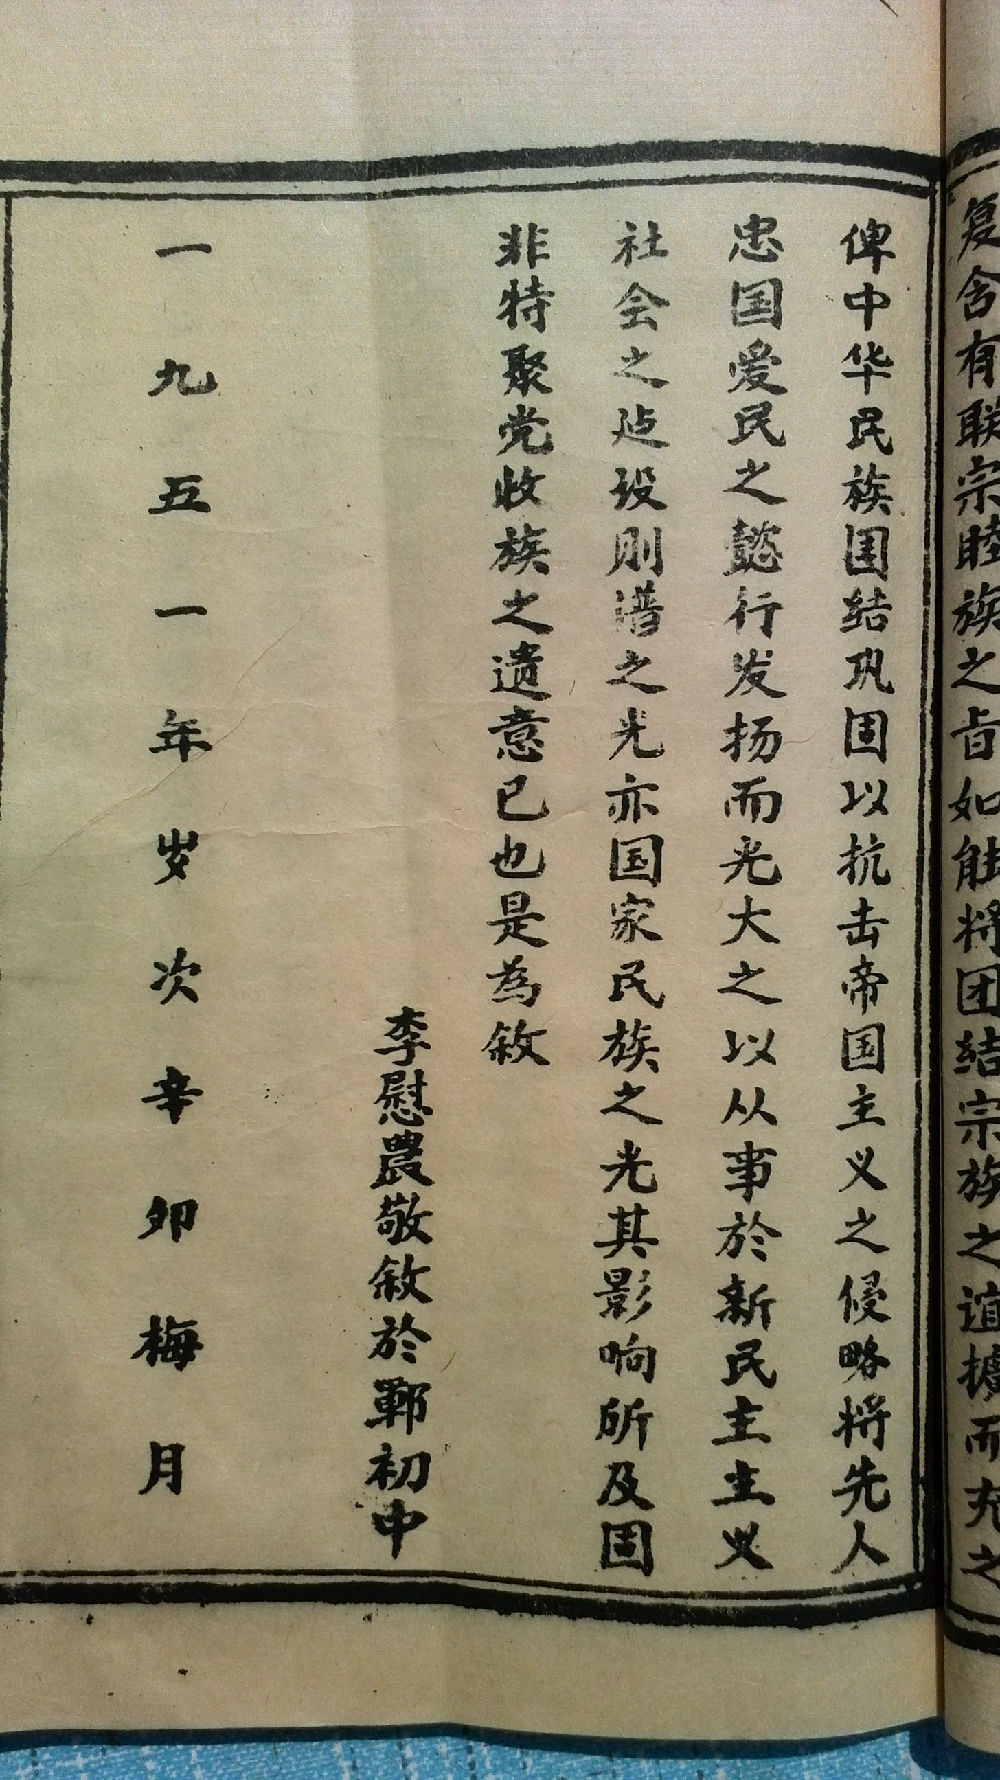 复含有联宗睦族之旨如能将团结宗族之谊扩而充之
俾中华民族团结巩固以抗击帝国主义之侵略将先人
忠国爱民之懿行发扬而光大之以从事於新民主主义
社会之建设则谱之光亦国家民族之光其影响所及固
非特聚党收族之遗意已也是为叙
李慰農敬叙於鄆初中
一九五一年岁次辛卯梅月